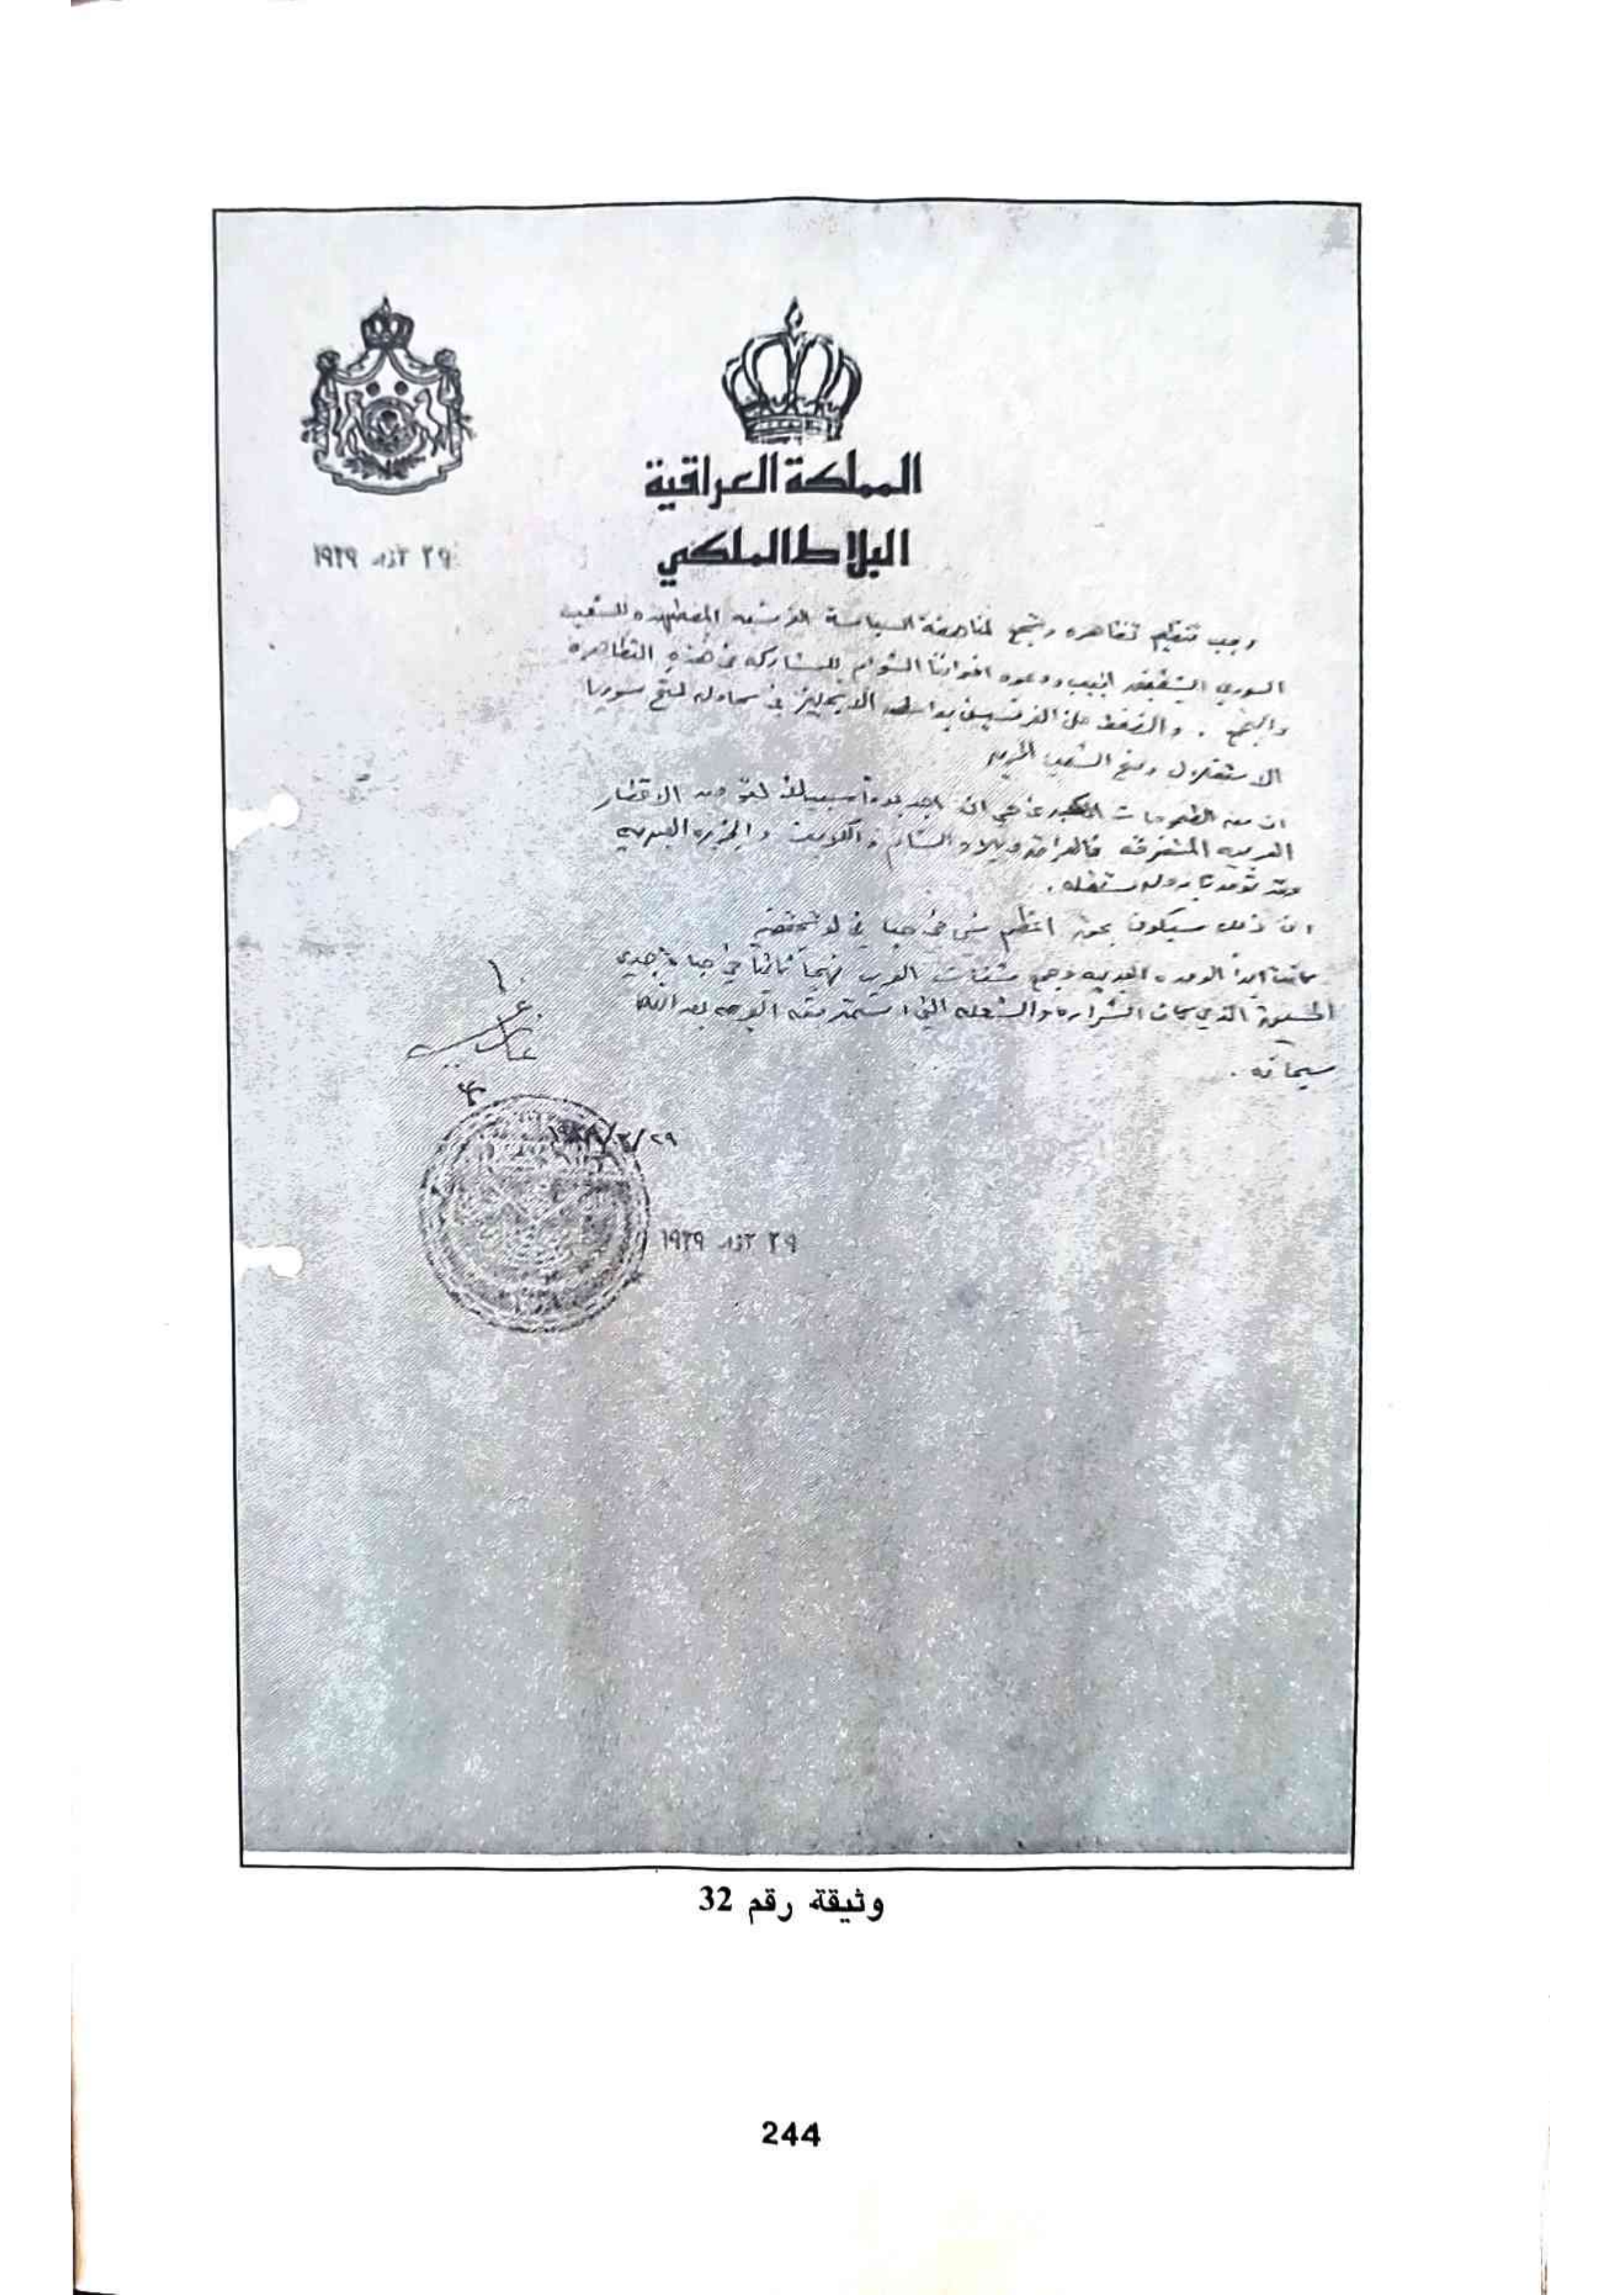 المملكة العراقية
البلاط الملكي
٢٩ آذار ١٩٣٩
وجب تنظيم تظاهره وتجمع لمناهضة السياسة الفرنسيه المضطهده للشعب
السوري الشقيق الحبيب ودعوه اخواننا الشوام للمشاركه في هذه التظاهره
والتجمع . والضغط على الفرنسيين بواسطه الانجليز في محاوله لمنح سوريا
الاستقلال ومنح الشعب الحريه
ان من الطموحات ان اجد يوماً سبيلا الاقطار
العربيه المتفرقه فالعراق وبلاد الشام والكويت والجزيره العربيه
وقد توحدنا بدوله مستقله .
ان ذلك سيكون بحق اعظم شيء في حياتي لو تحقق
كانت ابداً الوحده العربيه وجمع شتات العرب نهجاً ثابتاً في حياة جدي
الحسين الذي كان الشراره والشعله التي استمد منه بعد الله
سبحانه .
غازي
٢٩/٣/١٩٣٩
٢٩ آذار ١٩٣٩
وثيقة رقم 32
244